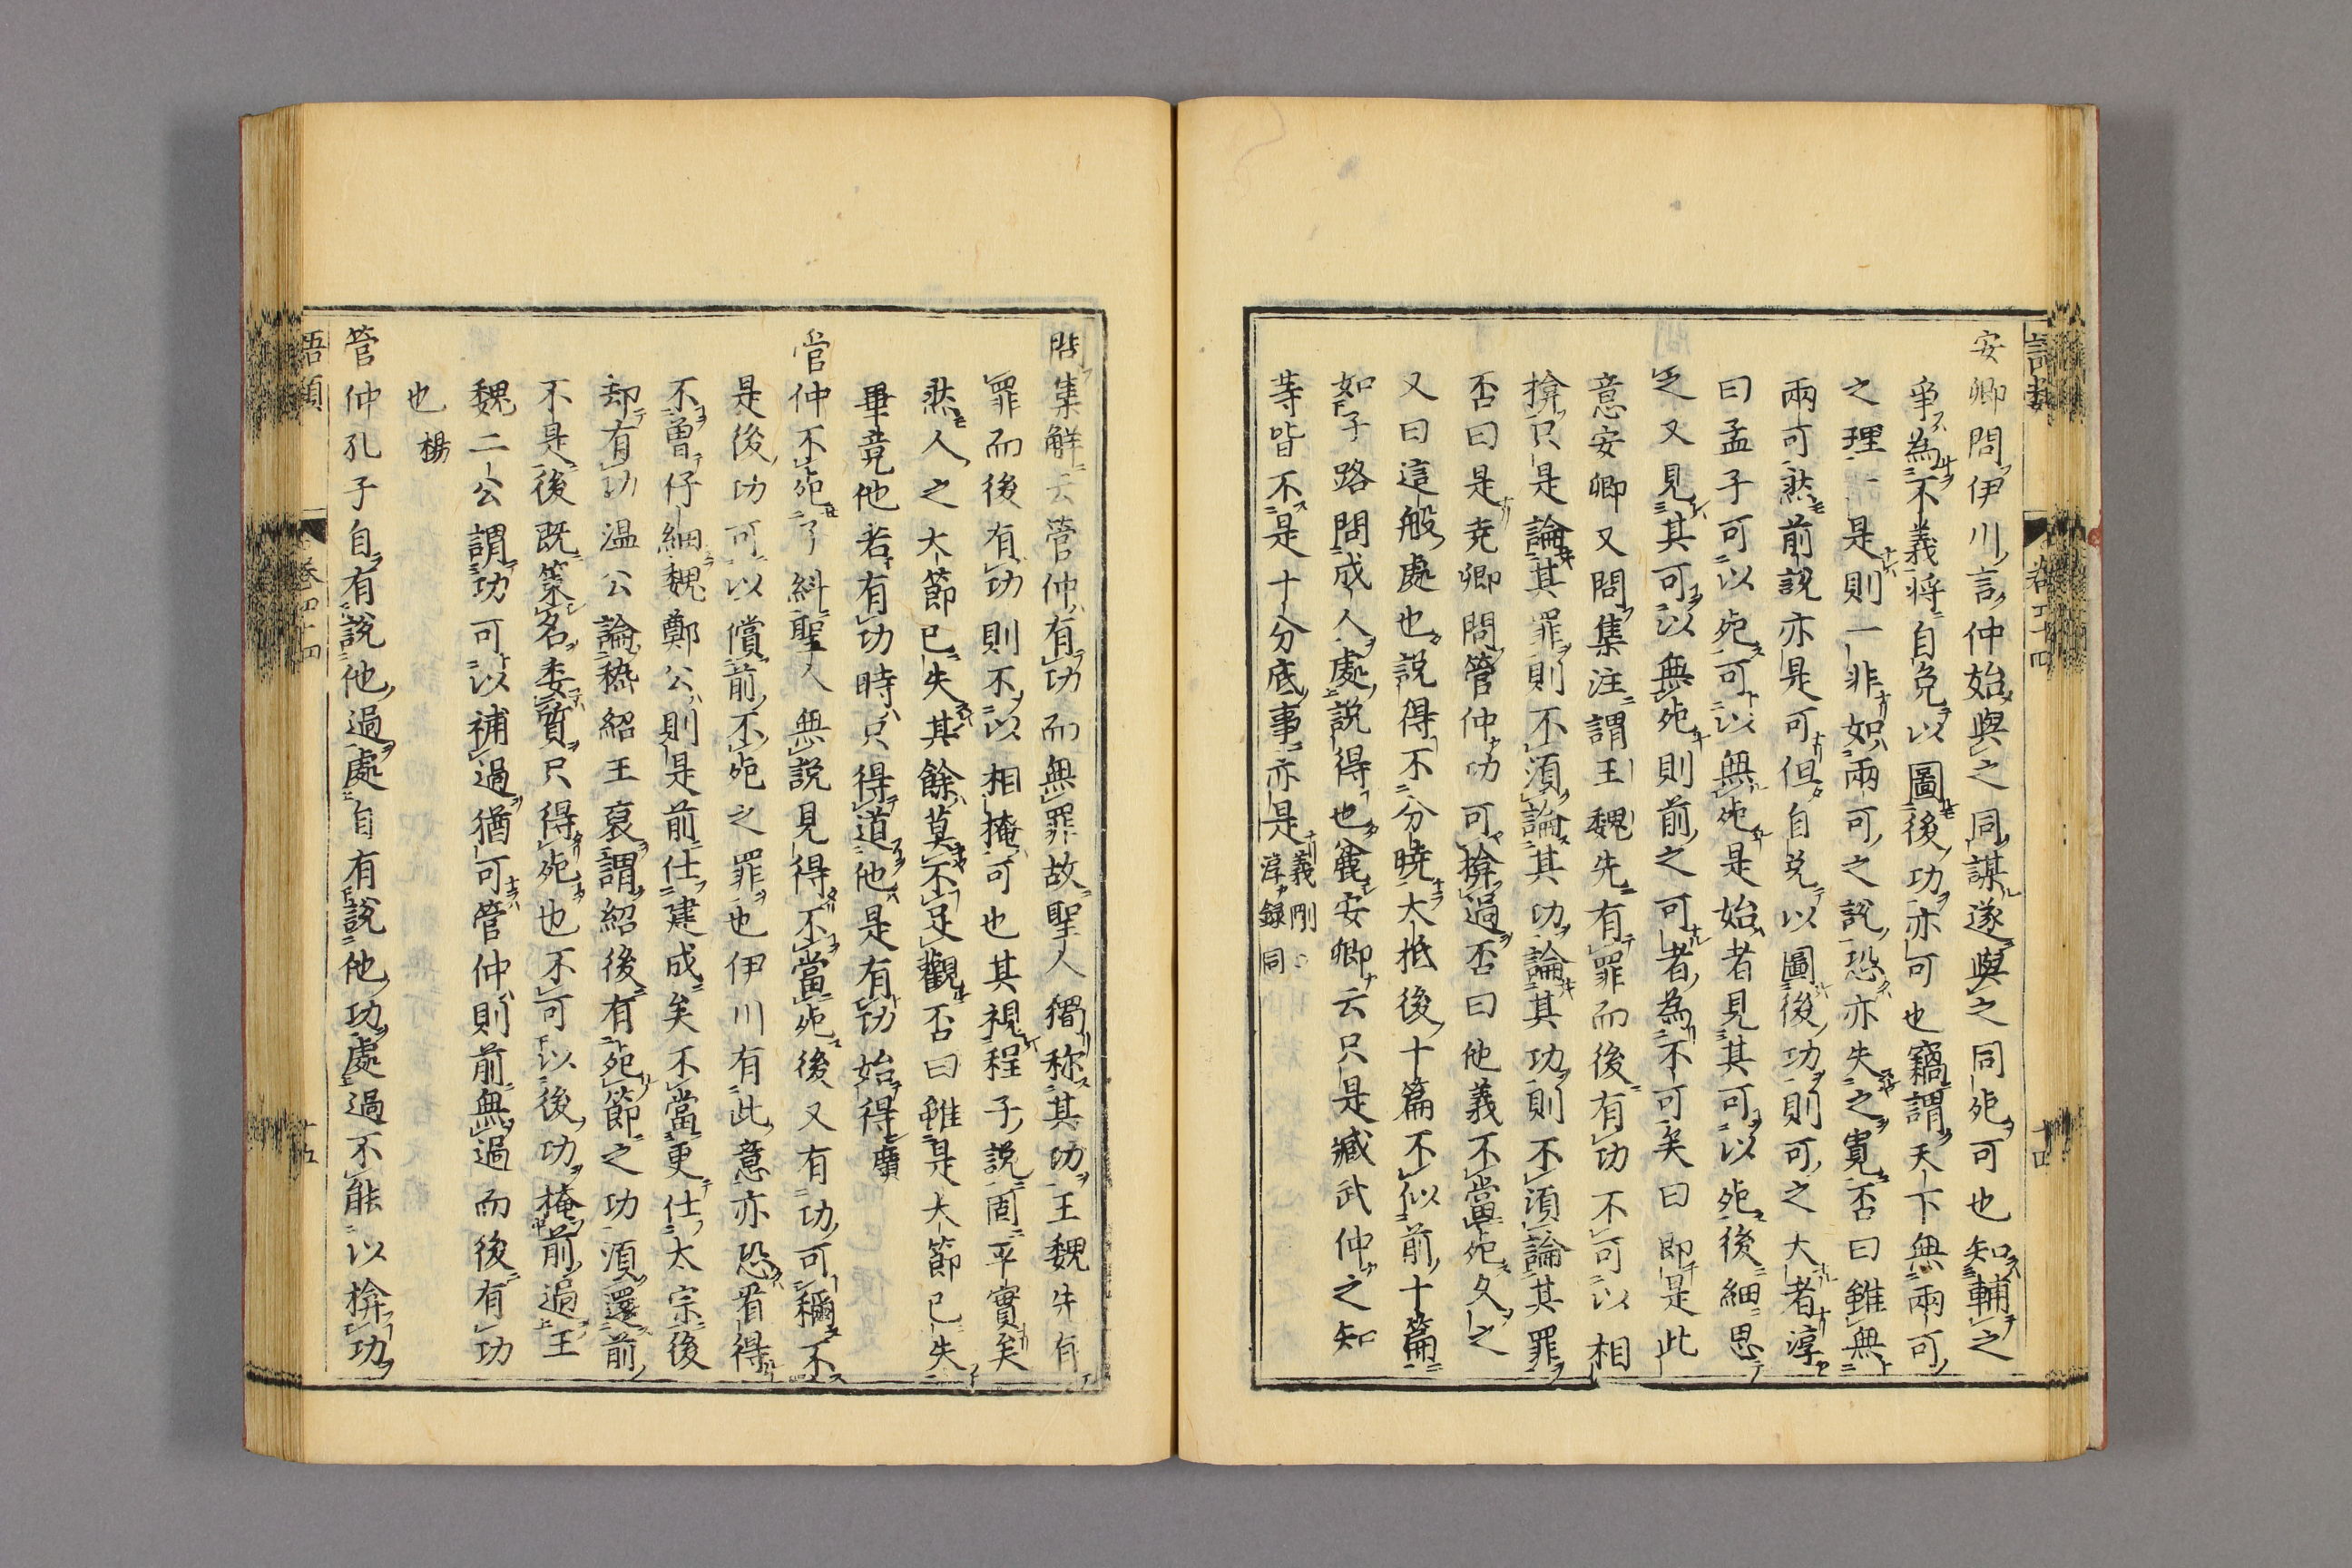 安卿問伊川言仲始與之同謀遂與之同死可也知輔之
爭為不義将自免以圖後功亦可也竊謂天下無兩可
之理一是則一非如兩可之說恐亦失之寛否曰雖無
兩可然前說亦是可但自免以圖後功則可之大者淳
曰孟子可以死可以無死是始者見其可以死後細思
之又見其可以無死則前之可者為不可矣曰即是此
意安卿又問集注謂王魏先有罪而後有功不可以相
揜只是論其罪則不須論其功論其功則不須論其罪
否曰是尭卿問管仲功可揜過否曰他義不當死久之
又曰這般處也說得不分曉大抵後十篇不似前十篇
如子路問成人處說得也麄安卿云只是臧武仲之知
等皆不是十分底事亦是義剛淳録同
問集解云管仲有功而無罪故聖人獨称其功王魏先有
罪而後有功則不以相掩可也其視程子說固平實矣
然人之大節已失其餘莫不足觀否曰雖是大節已失
畢竟他若有功時只得道他是有功始得廣
管仲不死子糾聖人無說見得不當死後又有功可稱不
是後功可以償前不死之罪也伊川有此意亦恐看得
不曾仔細魏鄭公則是前仕建成矣不當更仕太宗後
却有功温公論嵇紹王裒謂紹後有死節之功須還前
不是後既策名委質只得死也不可以後功掩前過王
魏二公謂功可以補過猶可管仲則前無過而後有功
也楊
管仲孔子自有說他過處自有說他功處過不能以揜功
語類
卷四十四
十五
卷四十四
十四